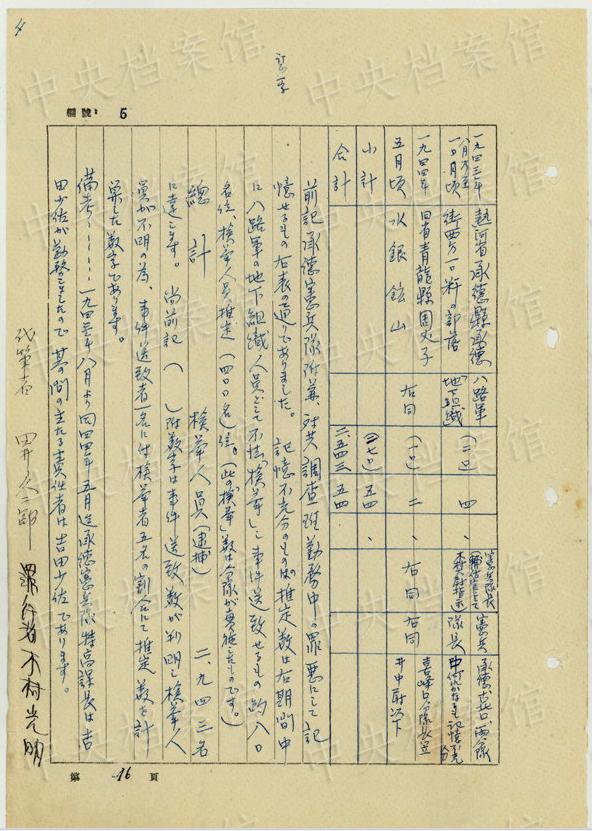 4
編號: 5
一九四三年 熱河省承德縣承德 八路軍 憲兵隊長 憲兵 承德、古北口、両分隊
八月乃至 地下組織
一〇月頃 街西方一〇粁の部落 (二〇) 四 、 隊長
一九四四年 同省青龍縣周丈子 右同 (一〇) 二 、 右同 右同 喜峰口分隊長
五月頃 水銀鉱山 井中尉以下
小計 (二七〇) 五四 、
合計 二、五四三 五四
前記承德憲兵隊附兼、対共調査班勤務中の罪悪にして記
憶せるもの右表の通りでありました。 記憶不充分のもの推定数は右期間中
に八路軍の地下組織人員として不法検挙し事件送致せるもの約八〇
名位、検挙人員推定(四〇〇名)位。(此の検挙数は分隊が実施したものです。)
總計 検挙人員(逮捕) 二、九四三名
に達します。 尚前記( )附数字は事件送致数が判明し検挙人
員が不明の為、事件送致者一名に付検挙者五名の割合にて推定数を計
算した数字であります。
備考……一九四三年八月より同四四年五月迄承德憲兵隊特高課長は吉
田少佐が勤務しましたので其の間の主たる責任者は吉田少佐であります。
代筆者 田井久二郎
罪行者 木村光明
第 16 頁
中央档案馆